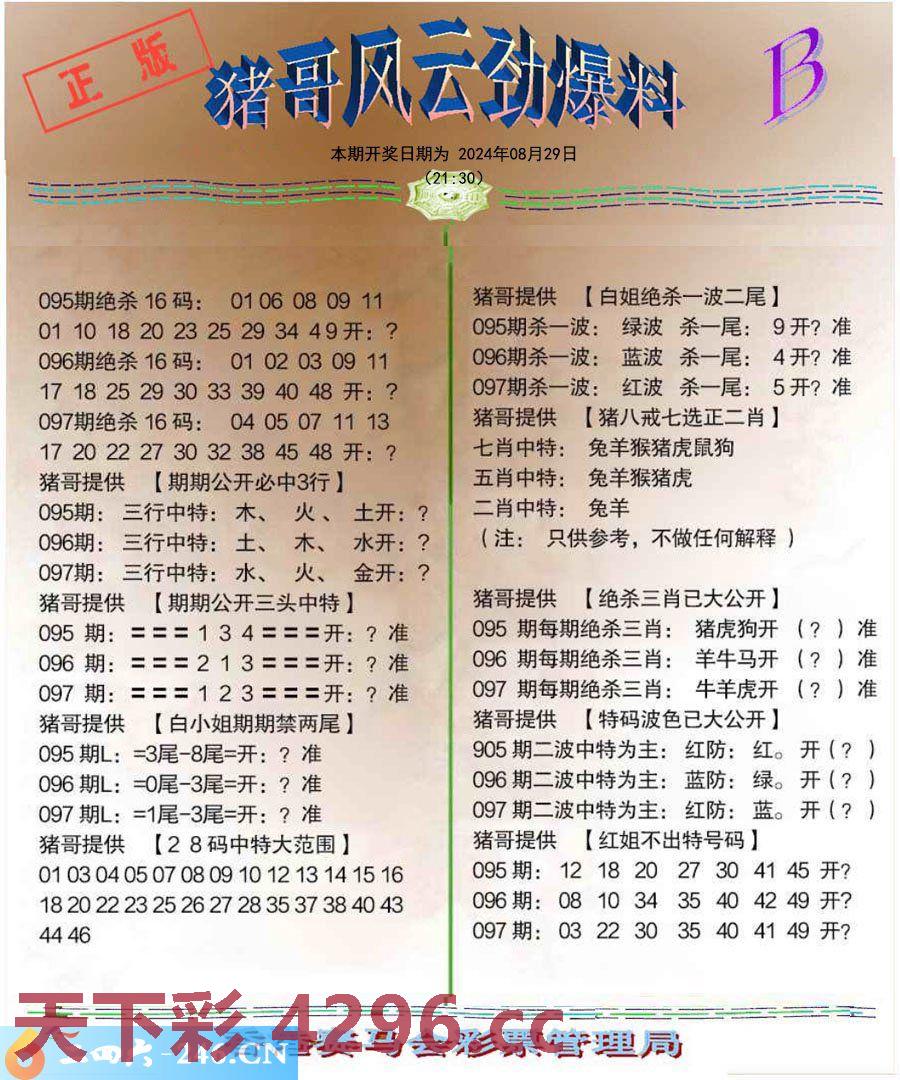 正版
猪哥风云劲爆料
B
本期开奖日期为 2024年08月29日
(21:30)
095期绝杀 16 码： 01 06 08 09 11
01 10 18 20 23 25 29 34 49 开：？
096期绝杀 16 码： 01 02 03 09 11
17 18 25 29 30 33 39 40 48 开：？
097期绝杀 16 码： 04 05 07 11 13
17 20 22 27 30 32 38 45 48 开：？
猪哥提供 【期期公开必中3行】
095期： 三行中特： 木、 火、 土开：？
096期： 三行中特： 土、 木、 水开：？
097期： 三行中特： 水、 火、 金开：？
猪哥提供 【期期公开三头中特】
095 期：＝＝＝1 3 4＝＝＝开：？准
096 期：＝＝＝2 1 3＝＝＝开：？准
097 期：＝＝＝1 2 3＝＝＝开：？准
猪哥提供 【白小姐期期禁两尾】
095期L：=3尾-8尾=开：？准
096期L：=0尾-3尾=开：？准
097期L：=1尾-3尾=开：？准
猪哥提供 【２８码中特大范围】
01 03 04 05 07 08 09 10 12 13 14 15 16
18 20 22 23 25 26 27 28 35 37 38 40 43
44 46
猪哥提供 【白姐绝杀一波二尾】
095期杀一波： 绿波 杀一尾： 9开？准
096期杀一波： 蓝波 杀一尾： 4开？准
097期杀一波： 红波 杀一尾： 5开？准
猪哥提供 【猪八戒七选正二肖】
七肖中特： 兔羊猴猪虎鼠狗
五肖中特： 兔羊猴猪虎
二肖中特： 兔羊
（注： 只供参考，不做任何解释 ）
猪哥提供 【绝杀三肖已大公开】
095 期每期绝杀三肖： 猪虎狗开 （？）准
096 期每期绝杀三肖： 羊牛马开 （？）准
097 期每期绝杀三肖： 牛羊虎开 （？）准
猪哥提供 【特码波色已大公开】
905 期二波中特为主： 红防： 红。 开（？）
096 期二波中特为主： 蓝防： 绿。 开（？）
097 期二波中特为主： 红防： 蓝。 开（？）
猪哥提供 【红姐不出特号码】
095 期： 12 18 20 27 30 41 45 开?
096 期： 08 10 34 35 40 42 49 开?
097 期： 03 22 30 35 40 41 49 开?
天下彩 4296.cc
二四六-246.CN
马会彩票管理局